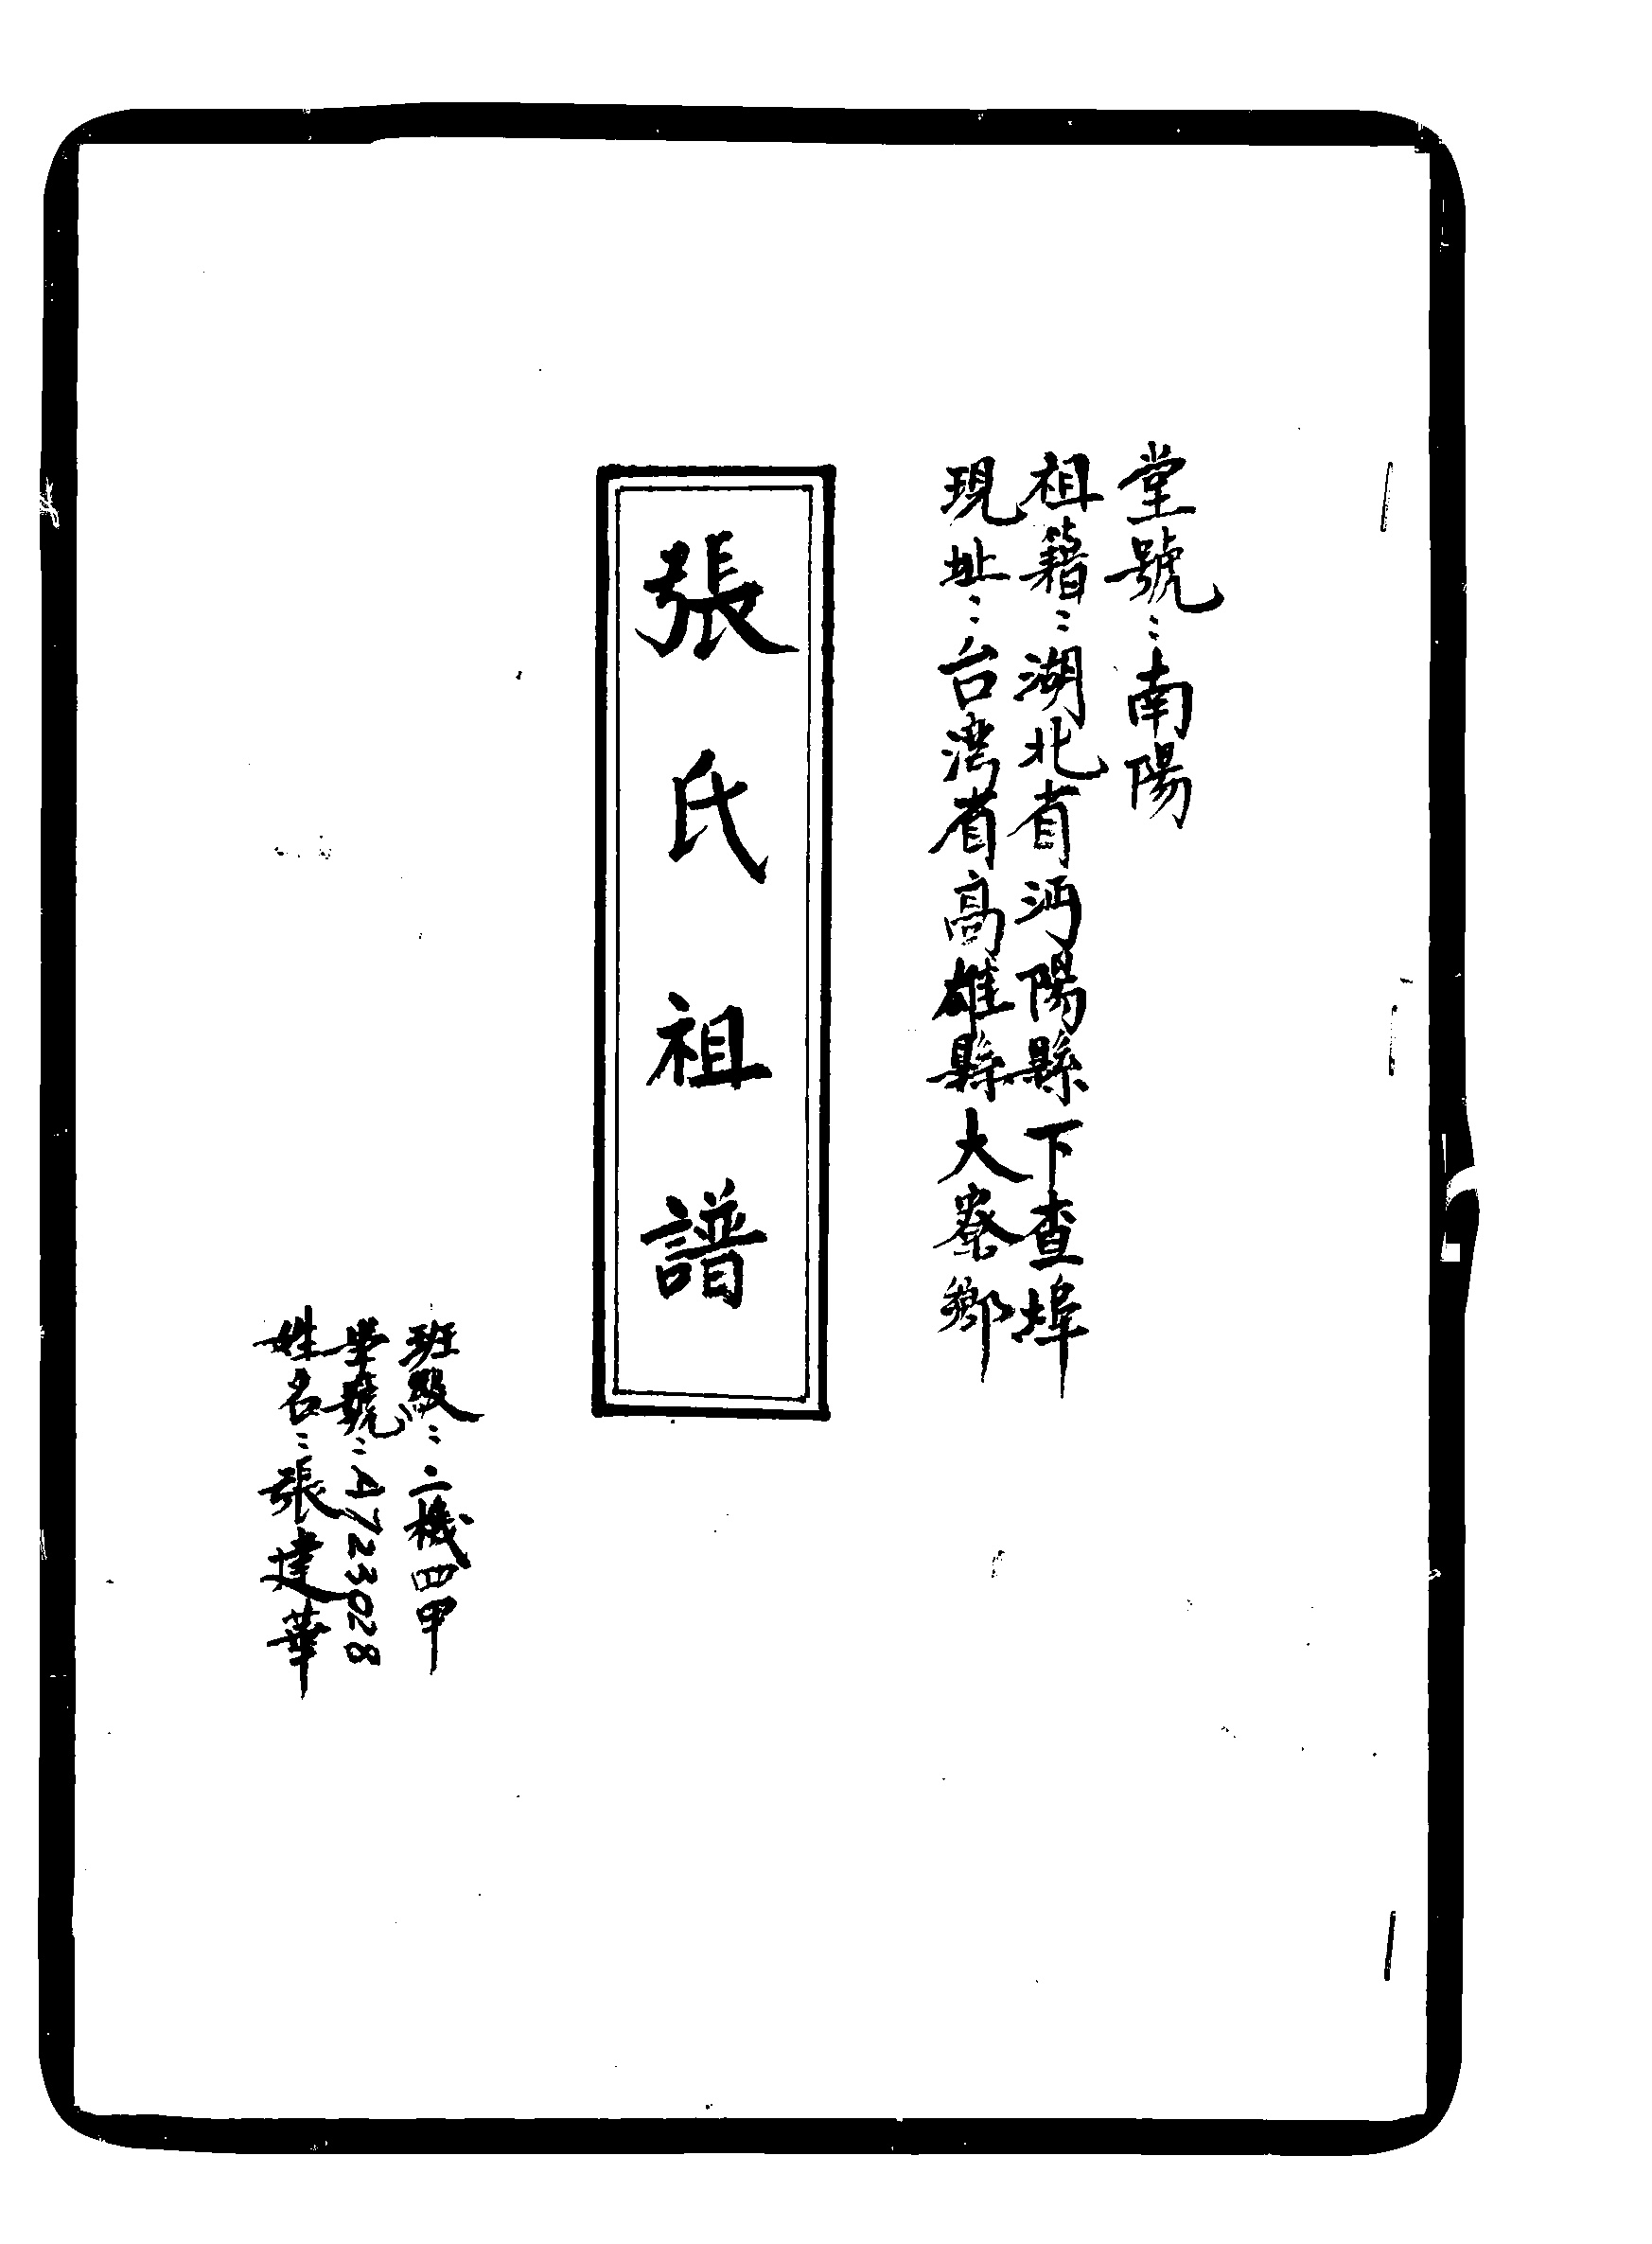 堂號：南陽
祖籍：湖北省沔陽縣下查埠
現址：台湾省高雄縣大寮鄉
張氏祖譜
班級：二機四甲
學號：A723028
姓名：張建華